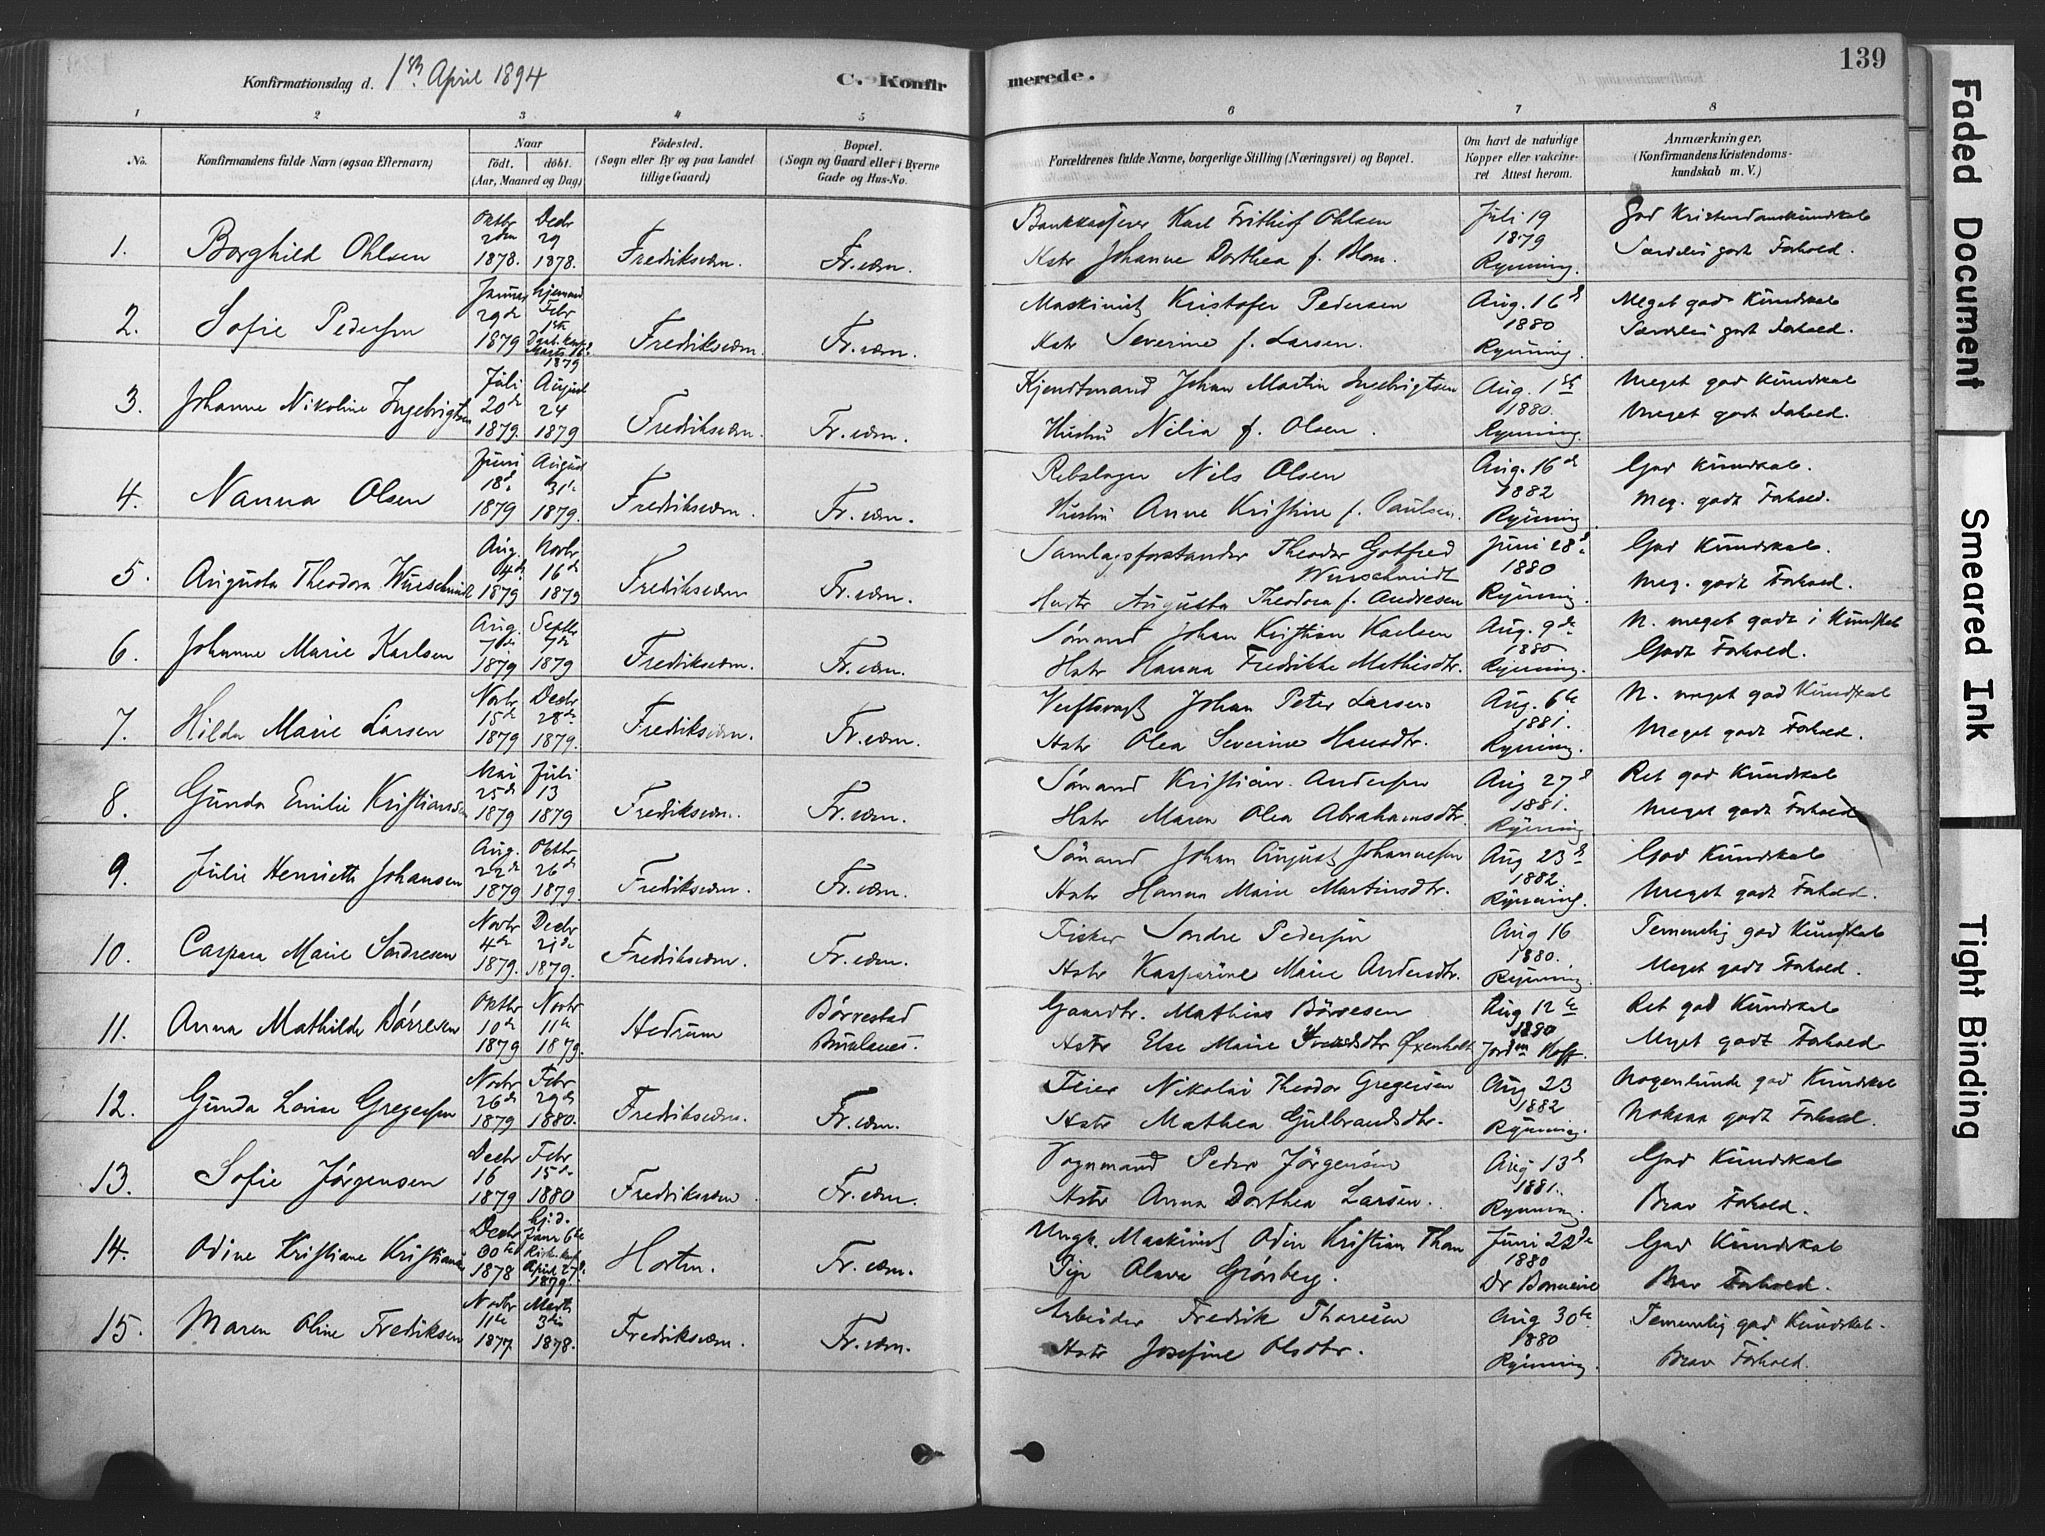 Konfirmationsdag d. 1ste April 1894
C. Konfirmerede.
139
1 2 3 4 5 6 7 8
No.
Konfirmandens fulde Navn (ogsaa Efternavn)
Naar
födt. döbt.
(Aar, Maaned og Dag)
Födested.
(Sogn eller By og paa Landet
tillige Gaard)
Bopæl.
(Sogn og Gaard eller i Byerne
Gade og Hus-No.
Forældrenes fulde Navne, borgerlige Stilling (Næringsvei) og Bopæl.
Om havt de naturlige
Kopper eller vakcine-
ret Attest herom.
Anmærkninger.
(Konfirmandens Kristendoms-
kundskab m. V.)
1. Borghild Ohlsen
Oktbr 2den 1878.
Decbr 29 1878.
Fredriksværn.
Fr.værn.
Bankkasserer Karl Frithiof Ohlsen
Hstr Johanne Dorthea f. Blom.
Juli 19
1879
Rynning.
God Kristendomskundskab
Særdeles godt Forhold.
2. Sofie Pedersen
Januar 29de 1879
hjemme Febr 1ste
Marts 16de
1879
Fredriksværn.
Fr.værn.
Maskinist Kristofer Pedersen
Hstr Severine f. Larsen.
Aug. 16de
1880
Rynning.
Meget god Kundskab
Særdeles godt Forhold.
3. Johanne Nikoline Ingebrigtsen
Juli 20de 1879.
August 24 1879
Fredriksværn.
Fr.værn.
Kjendtmand Johan Martin Ingebrigtsen
Hustru Nilia f. Olsen.
Aug. 1ste
1880.
Rynning.
Meget god Kundskab
Meget godt Forhold.
4. Nanna Olsen
Juni 18de 1879
August 31te 1879.
Fredriksværn.
Fr.værn.
Rebslager Nils Olsen
Hustru Anne Kristine f. Paulsen.
Aug. 16de
1882
Rynning
God Kundskab.
Meg. godt Forhold.
5. Augusta Theodora Wurschmidt
Aug. 4de 1879
Novbr 16de 1879
Fredriksværn
Fr.værn.
Samlagsforstander Theodor Gotfred
Wurschmidt
Hustr Augusta Theodora f. Andresen
Juni 28de
1880
Rynning.
God Kundskab.
Meg. godt Forhold.
6. Johanne Marie Karlsen
Aug. 7de 1879
Septbr 7de 1879
Fredriksværn.
Fr.værn.
Sømand Johan Kristian Karlsen
Hstr Hanna Fredrikke Mathisdtr.
Aug. 9de
1880
Rynning.
N. meget godt i Kundskab
Godt Forhold.
7. Hilda Marie Larsen
Novbr 15de 1879
Decbr 28de 1879.
Fredriksværn.
Fr.værn.
Verftsvagt Johan Peter Larsen
Hstr Olea Severine Hansdtr.
Aug. 6te
1881.
Rynning.
N. meget god Kundskab
Meget godt Forhold.
8. Gunda Emilie Kristiansen
Mai 25de 1879
Juli 13 1879
Fredriksværn.
Fr.værn.
Sømand Kristian Andersen
Hstr Maren Olea Abrahamsdtr.
Aug 27de
1881.
Rynning
Ret god Kundskab
Meget godt Forhold
9. Julie Henriette Johansen
Aug. 22de 1879
Oktbr 26de 1879.
Fredriksværn.
Fr.værn.
Sømand Johan August Johannesen
Hstr Hanna Marie Martinsdtr.
Aug 23de
1882
Rynning.
God Kundskab
Meget godt Forhold.
10. Caspara Marie Sondresen
Novbr 4de 1879.
Decbr 21de 1879.
Fredriksværn.
Fr.værn.
Fisker Sondre Pedersen
Hstr Kasparine Marie Andersdtr.
Aug 16
1880.
Rynning
Temmelig god Kundskab
Meget godt Forhold.
11. Anna Mathilde Börresen
Oktbr 10de 1879
Novbr 11te 1879.
Hedrum
Börrestad
Brunlanes.
Gaardbr. Mathias Börresen
Hstr Else Marie Øxenholt
Aug 12te
1880
Hoff.
Ret god Kundskab
Meget godt Forhold
12. Gunda Lovise Gregersen
Novbr 26de 1879
Febr 29de 1880.
Fredriksværn.
Fr.værn.
Feier Nikolai Theodor Gregersen
Hstr Mathea Gulbrandsdtr.
Aug 23
1882
Rynning.
Nogenlunde god Kundskab
Noksaa godt Forhold.
13. Sofie Jörgensen
Decbr 16 1879
Febr 15de 1880
Fredriksværn
Fr.værn.
Vognmand Peder Jörgensen
Hstr Anna Dorthea Larsen.
Aug 13de
1881.
Rynning
God Kundskab
Brav Forhold.
14. Odine Kristiane Kristiansen
Decbr 30te 1878
hj.d. Janr 6te
April 27de 1879.
Horten.
Fr.værn.
Ungk. Maskinist Odin Kristian Thon
Pige Olava Grönberg.
Juni 22de
1880
Dr
God Kundskab
Brav Forhold.
15. Maren Oline Fredriksen
Novbr 11te 1877.
Marts 3die 1878.
Fredriksværn.
Fr.værn.
Arbeider Fredrik Thoresen
Hstr Josefine Olsdtr.
Aug 30te
1880
Rynning.
Temmelig god Kundskab.
Brav Forhold.
Faded Document
Smeared Ink
Tight Binding